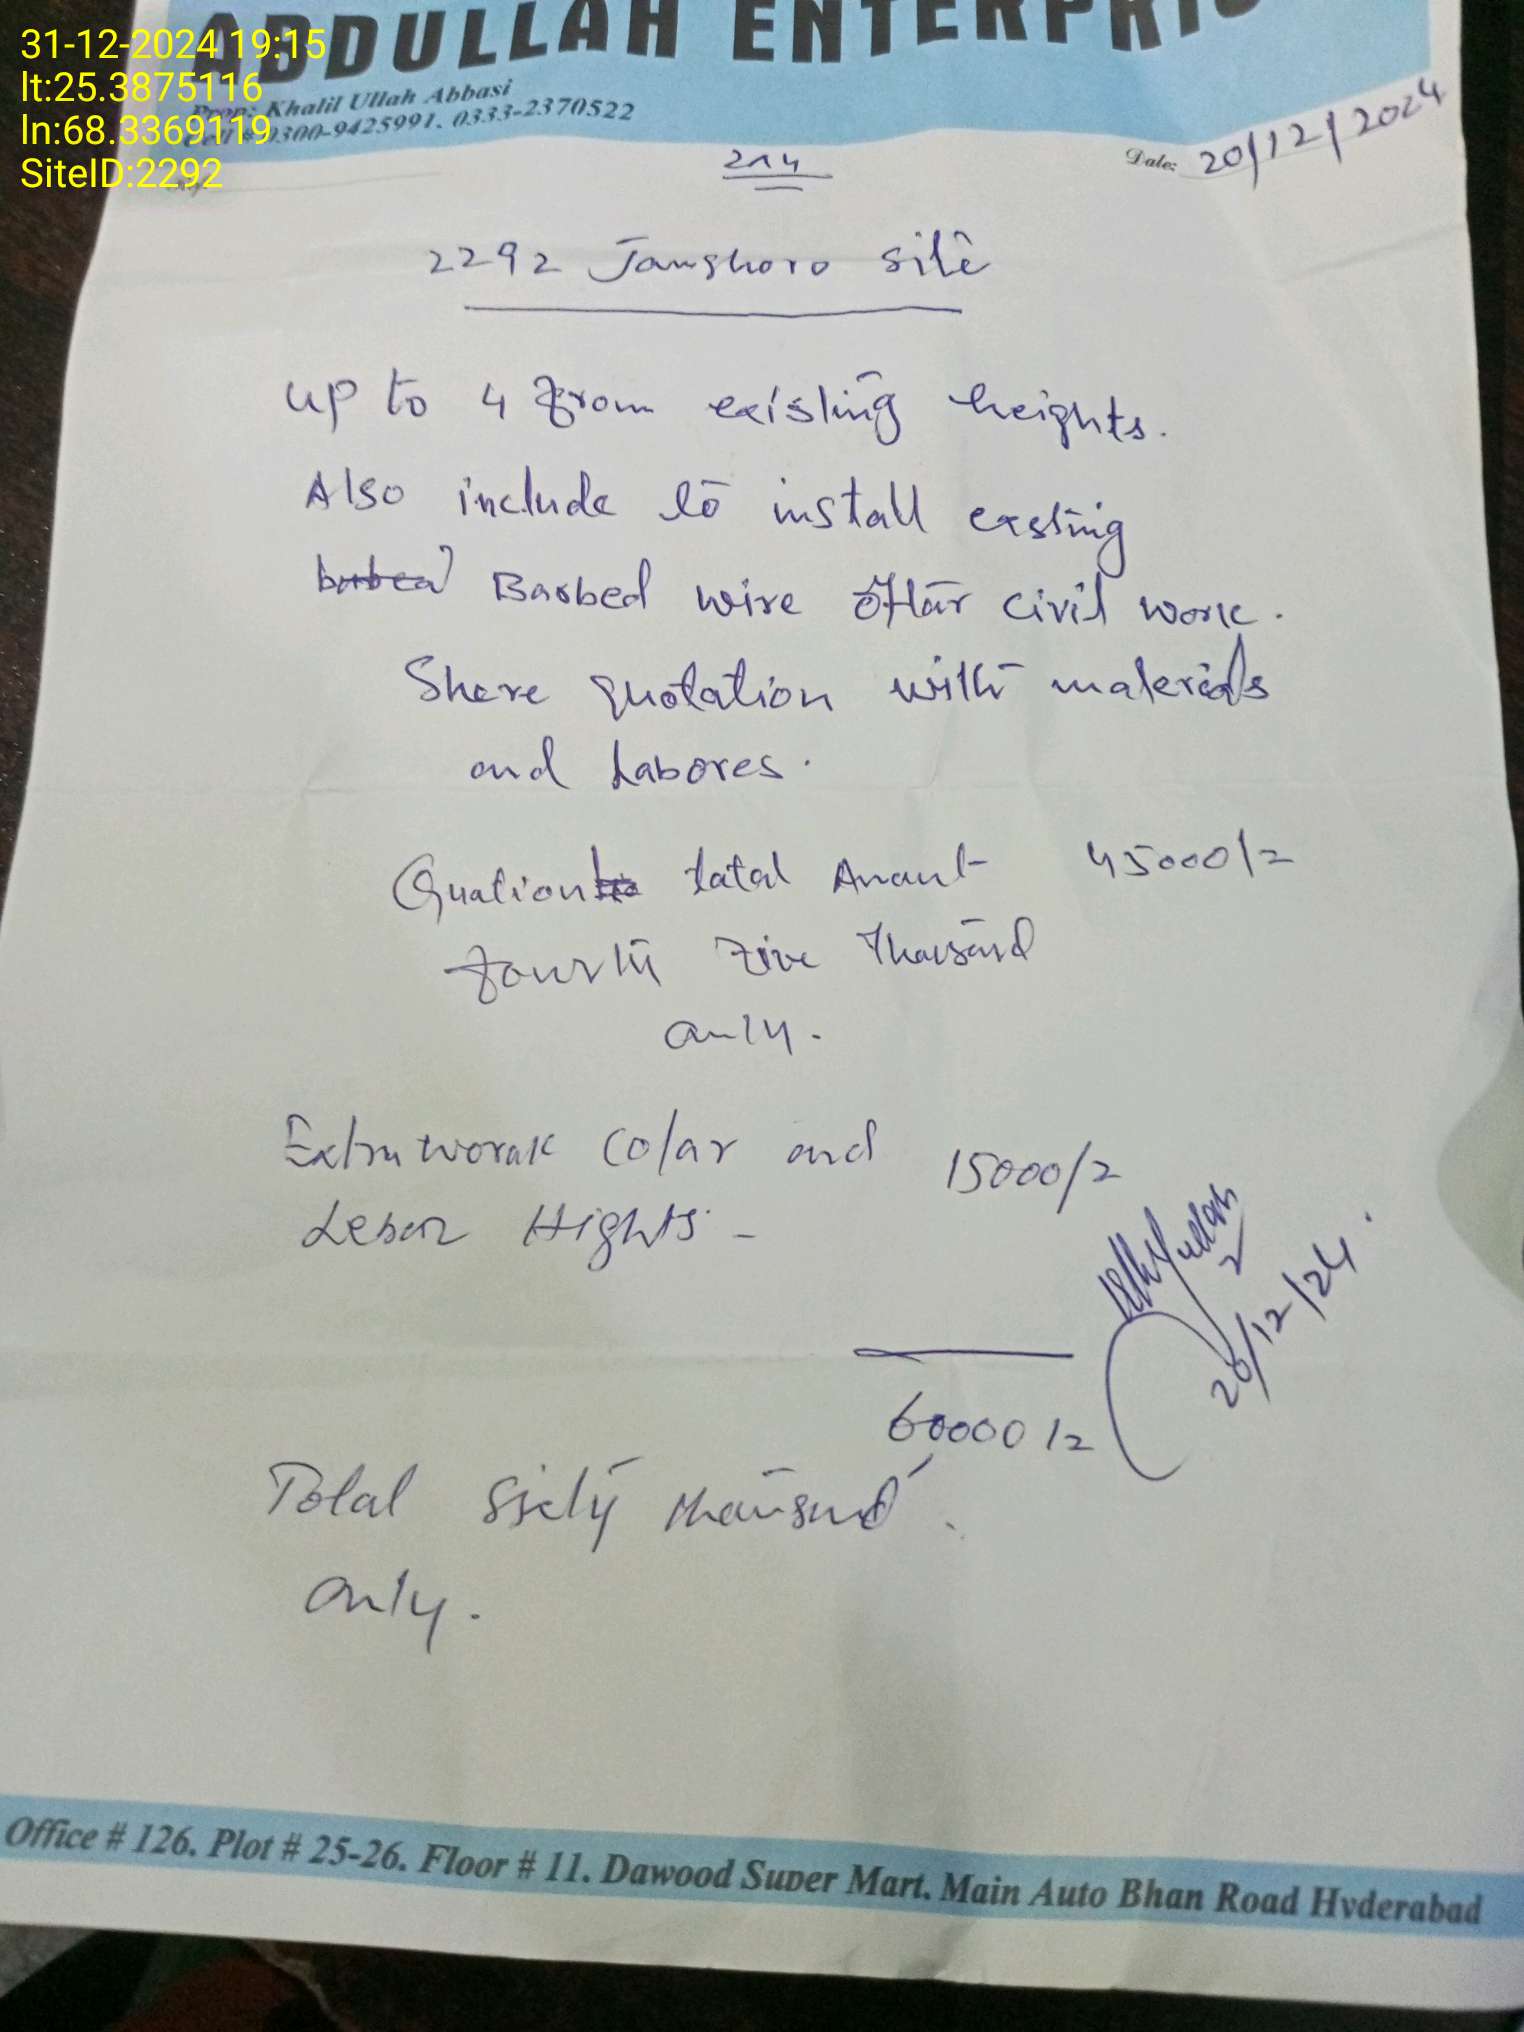 31-12-2024 19:15
lt:25.3875116
ln:68.3369119
SiteID:2292
ABDULLAH ENTERPRIS
Prop: Khalil Ullah Abbasi
Cell # 0300-9425991. 0333-2370522
Date: 20/12/2024
2292 Jamshoro site
up to 4 from existing heights.
Also include to install exsting
Barbed wire after civil work.
Share quotation with materials
and Labores.
Quation total Amant 45000/=
fourth five Thousand
only.
Extra worak Colar and 15000/=
Leber Hights -
20/12/24.
60000/=
Total Sixty thousand.
only.
Office # 126. Plot # 25-26. Floor # 11. Dawood Super Mart. Main Auto Bhan Road Hyderabad